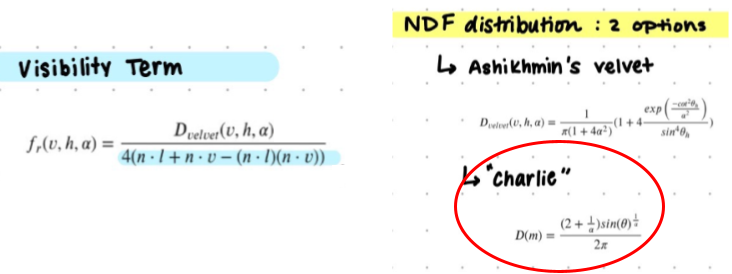 Visibility Term
f_r(v, h, α) = D_velvet(v, h, α) / 4(n · l + n · v − (n · l)(n · v))
NDF distribution : 2 options
↳ Ashikhmin's velvet
D_velvet(v, h, α) = 1 / π(1 + 4α²) (1 + 4 exp(−cot²θ_h / α²) / sin⁴θ_h)
↳ "charlie"
D(m) = (2 + 1/α)sin(θ)^(1/α) / 2π